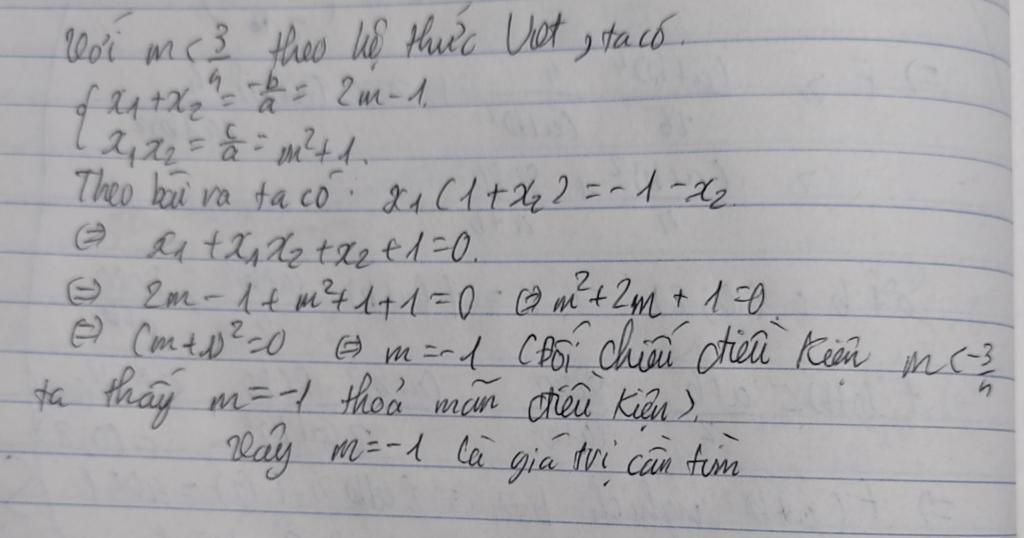 Với m < 3/4 theo hệ thức Viet, ta có.
{ x₁ + x₂ = -b/a = 2m - 1.
x₁x₂ = c/a = m² + 1.
Theo bài ra ta có: x₁(1 + x₂) = -1 - x₂
⇔ x₁ + x₁x₂ + x₂ + 1 = 0.
⇔ 2m - 1 + m² + 1 + 1 = 0 ⇔ m² + 2m + 1 = 0
⇔ (m + 1)² = 0 ⇔ m = -1 (Đối chiếu điều kiện m < -3/4
ta thấy m = -1 thoả mãn điều kiện).
Vậy m = -1 là giá trị cần tìm